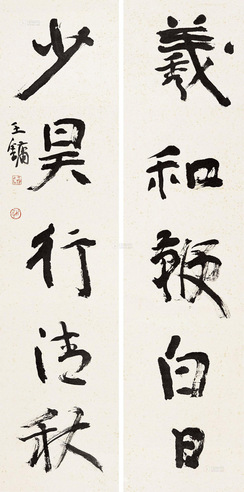 羲和鞭白日
少昊行清秋
王鏞